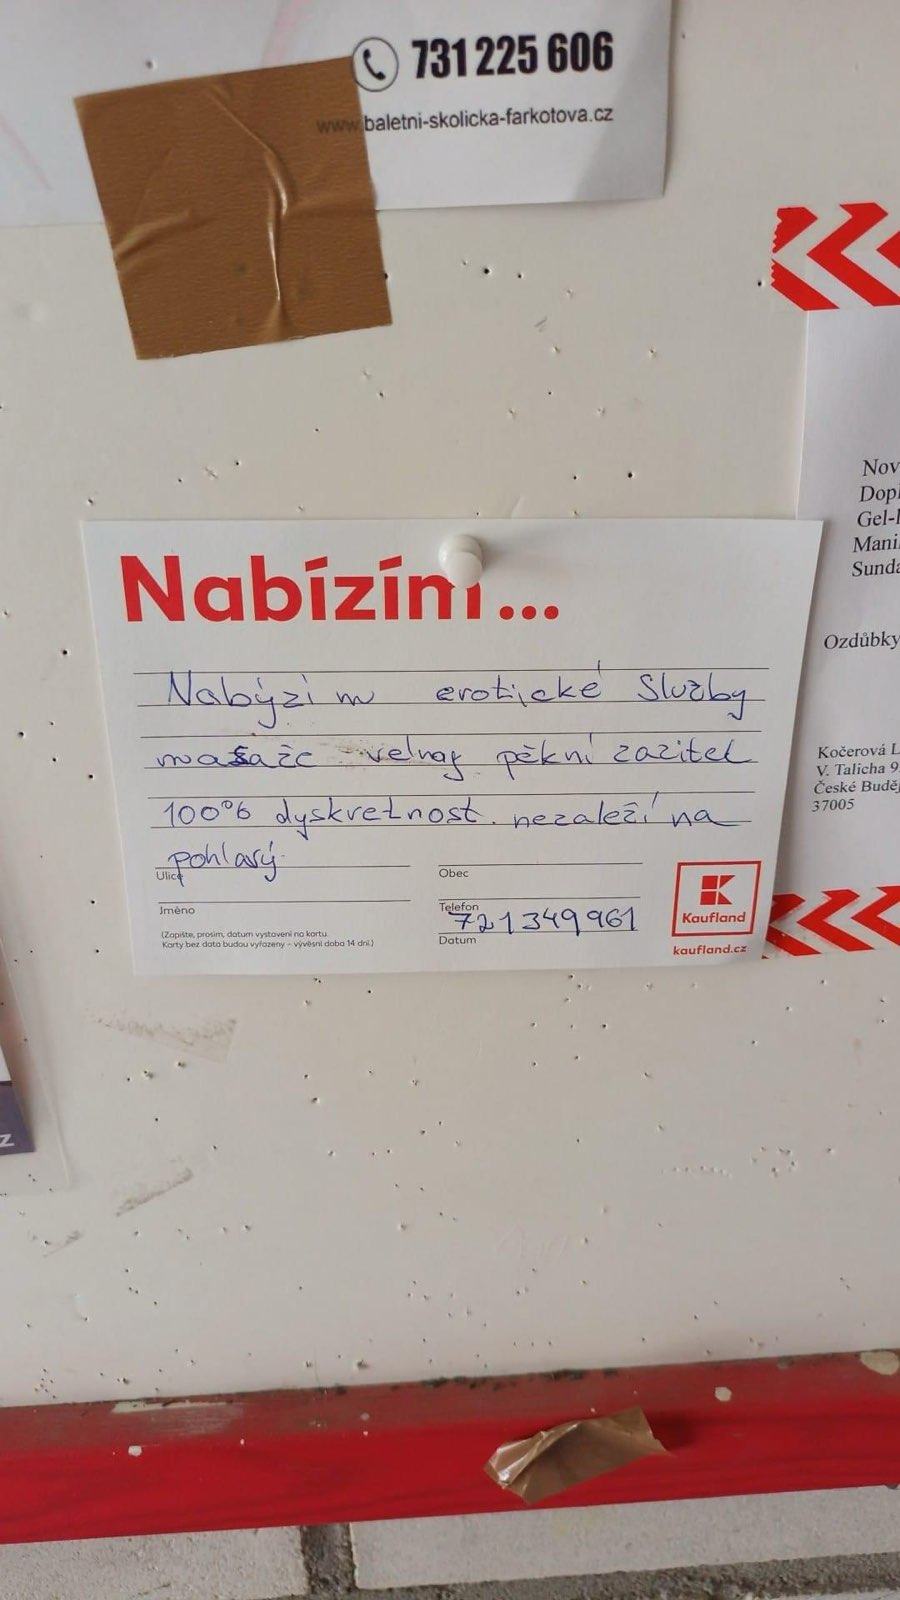 731 225 606
www.baletni-skolicka-farkotova.cz
Nabízím...
Nabýzí m erotické Služby
masaže velmy pěkní zazitek
100% dyskretnost. nezaleží na
pohlavý.
Ulice
Obec
Jméno
Telefon
721349961
Datum
(Zapište, prosím, datum vystavení na kartu.
Karty bez data budou vyřazeny – vývěsní doba 14 dní.)
Kaufland
kaufland.cz
Nov
Dopl
Gel-l
Mani
Sunda
Ozdůbky
Kočerová L
V. Talicha 9
České Buděj
37005
z